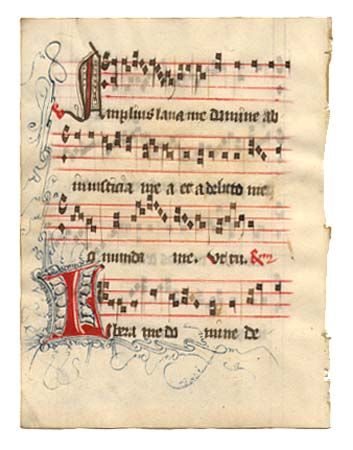 Amplius laua me domine ab
iniusticia me a et a delicto me
o munda me.
Libera me do mine de